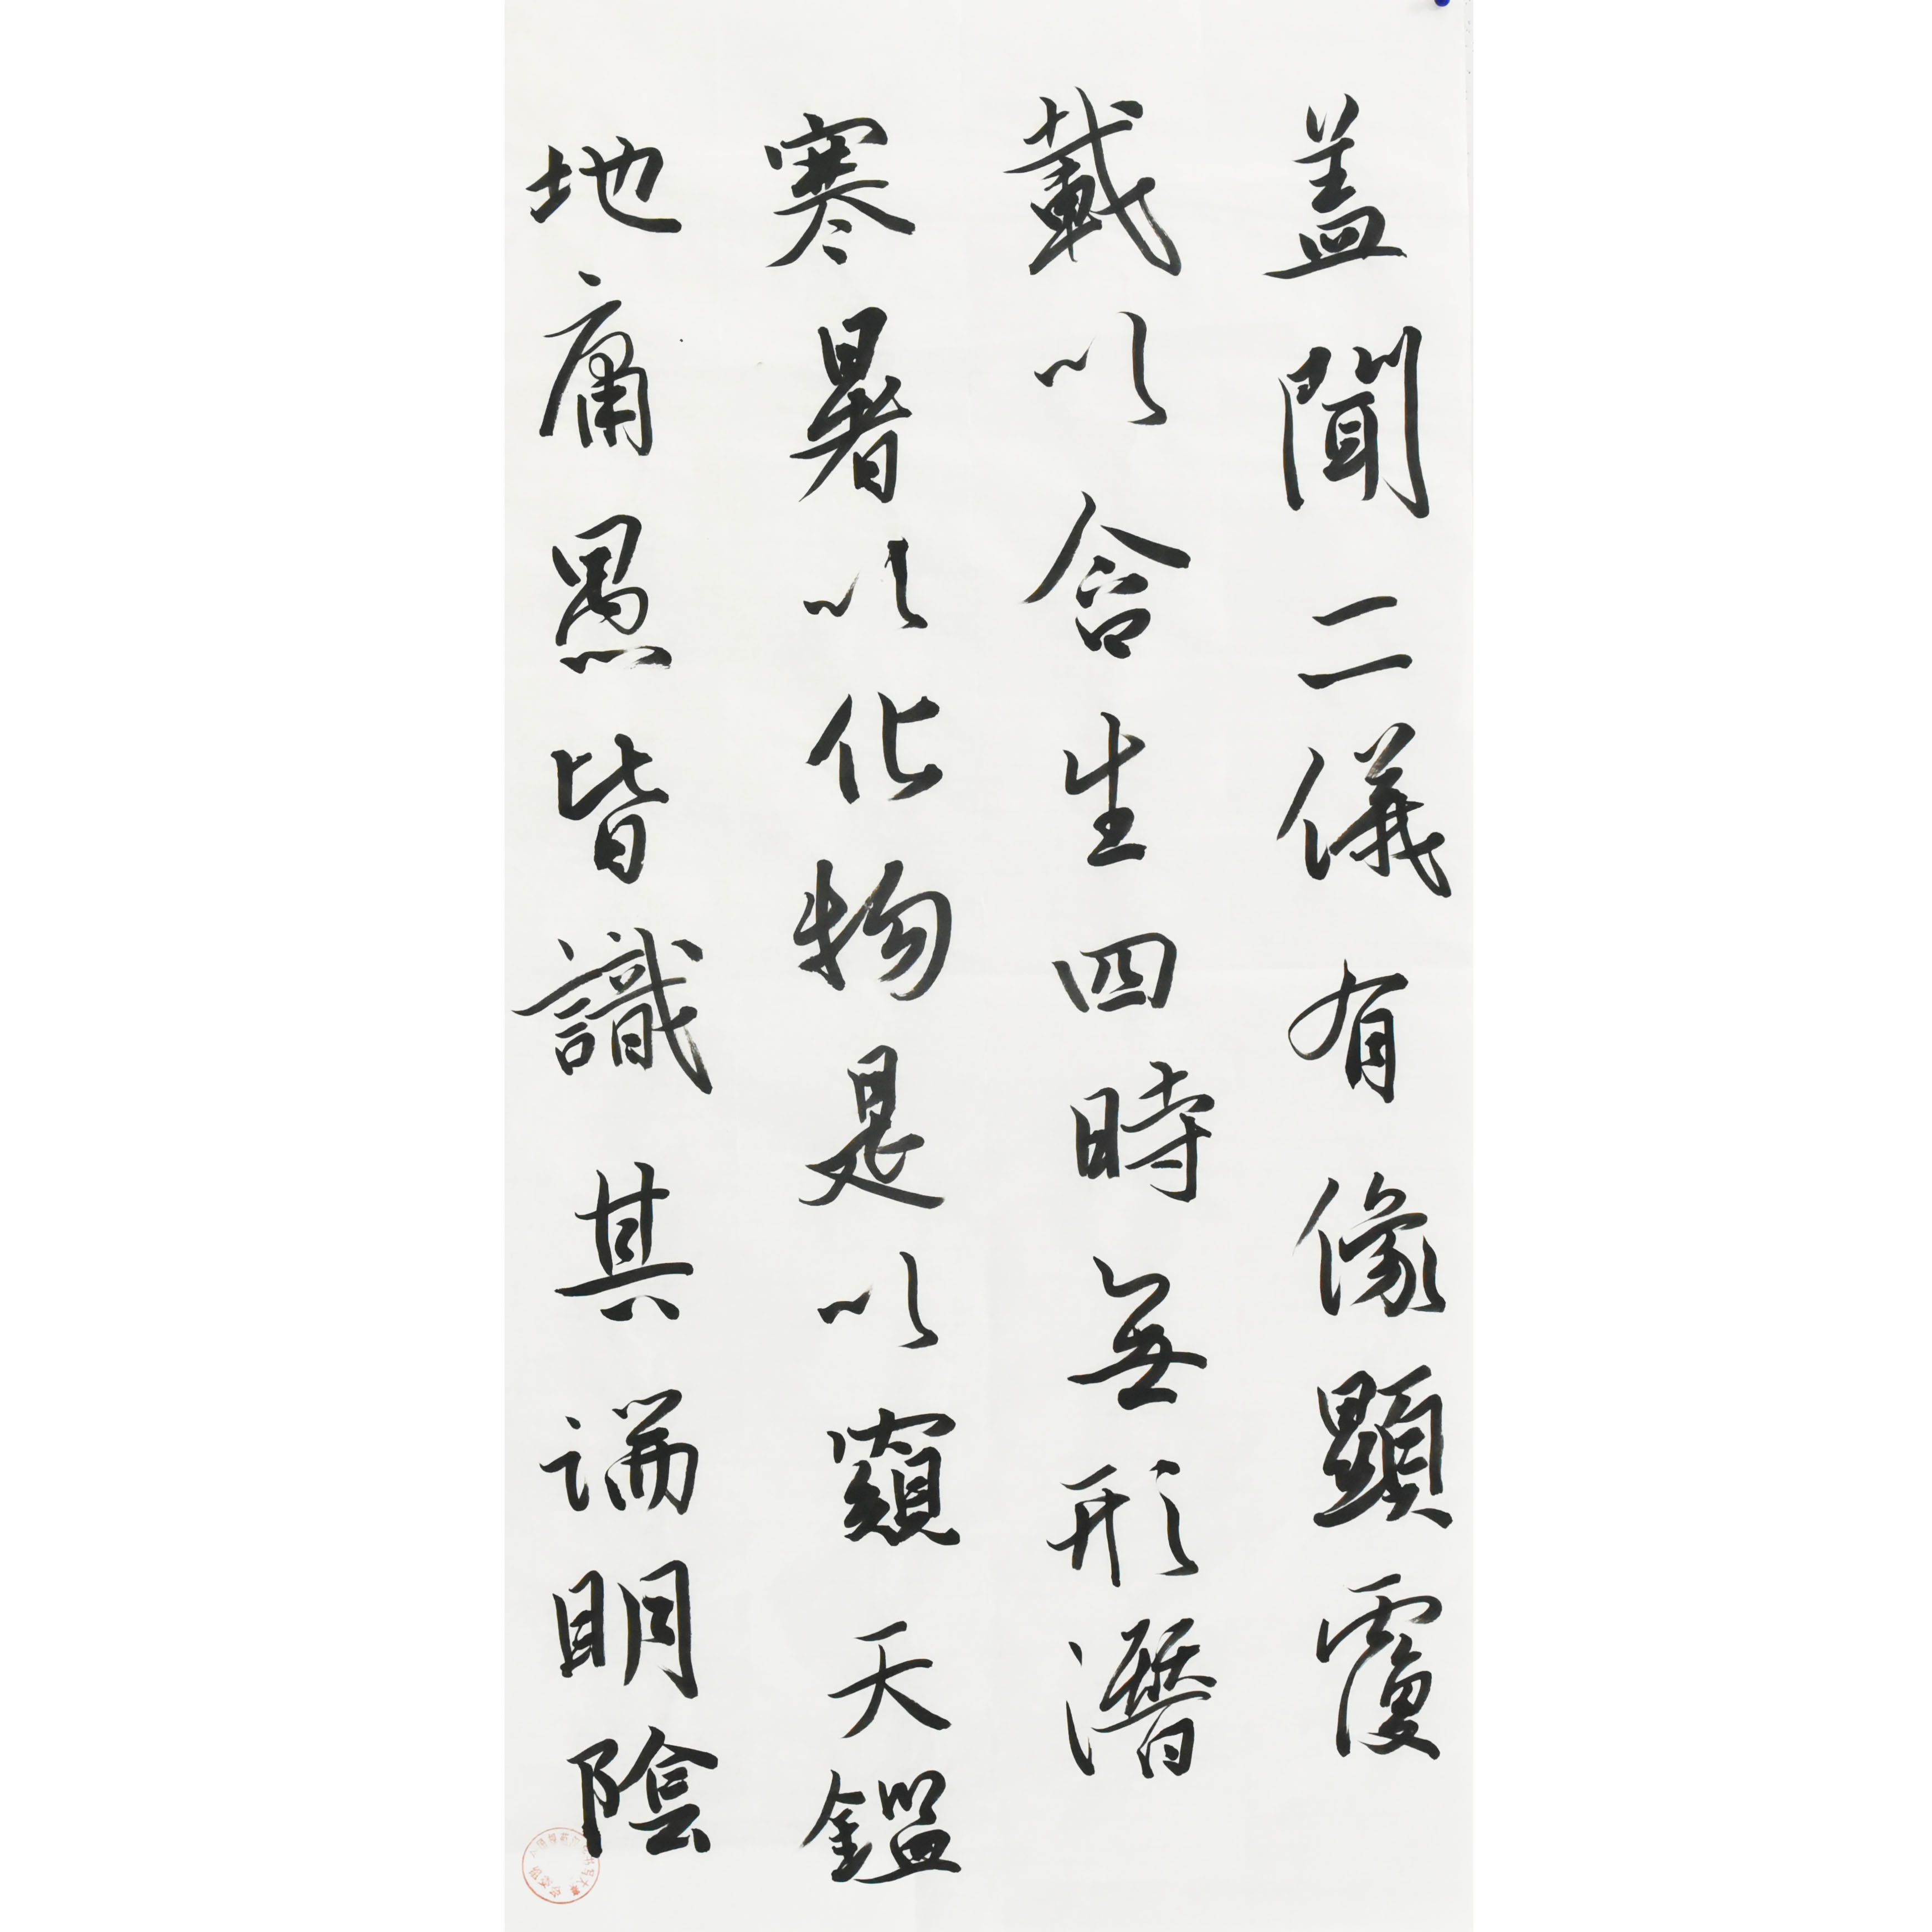 蓋聞二儀有像顯覆
載以含生四時無形潛
寒暑以化物是以窺天鑑
地庸愚皆識其端明陰